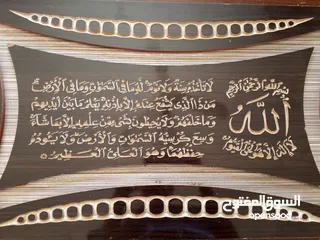 بسم الله الرحمن الرحيم
الله
لا إله إلا هو الحي القيوم
لا تأخذه سنة ولا نوم له ما في السموات وما في الأرض
من ذا الذي يشفع عنده إلا بإذنه يعلم ما بين أيديهم
وما خلفهم ولا يحيطون بشيء من علمه إلا بما شاء
وسع كرسيه السموات والأرض ولا يؤوده
حفظهما وهو العلي العظيم
السوق المفتوح
opensooq.com